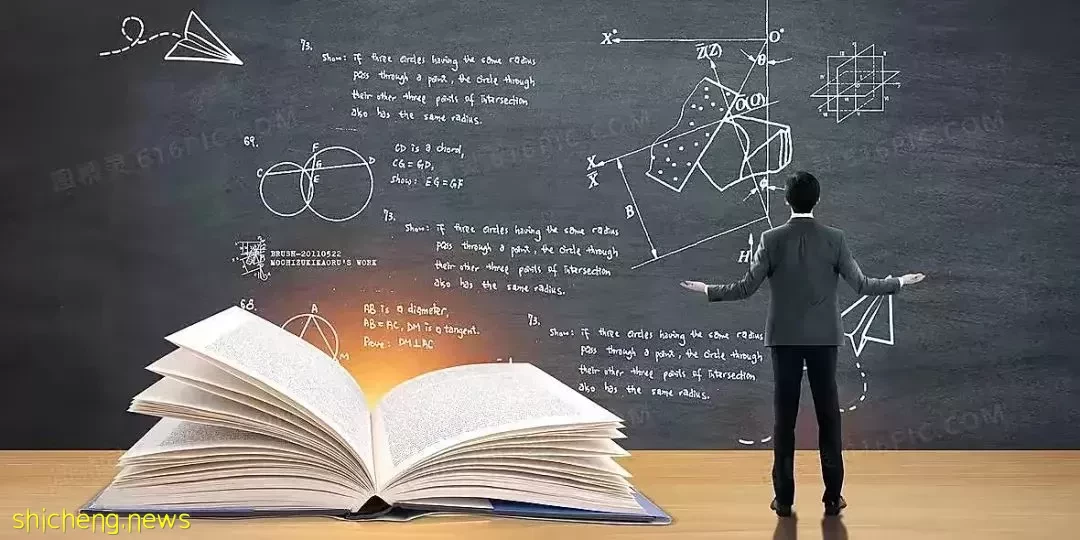 73.
Show: if three circles having the same radius
pass through a point, the circle through
their other three points of intersection
also has the same radius.
X° O°
Z(Z)
θ
O(O)
69.
F
C G D
E
CD is a chord,
CG = GD,
Show: EG = GF
X
X̄
B
Φ
H
73.
Show: if three circles having the same radius
pass through a point, the circle through
their other three points of intersection
also has the same radius.
BRUSH-20110522
MOCHIZUKIKAORU'S WORK
68.
A
M
AB is a diameter,
AB = AC, DM is a tangent.
Prove: DM⊥AC
73.
Show: if three circles having the same radius
pass through a point, the circle through
their other three points of intersection
also has the same radius.
图精灵 616PIC.COM
616PIC.COM
616PIC.COM
616PIC.COM
shicheng.news